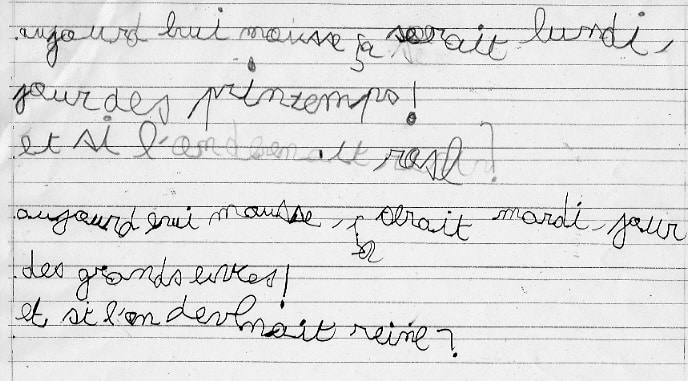 aujourd hui mousse ça serait lundi,
jour des printemps!
et si l'on devenait rose?
aujourd hui mousse, ça serait mardi, jour
des grands livres!
et si l'on devenait reine?